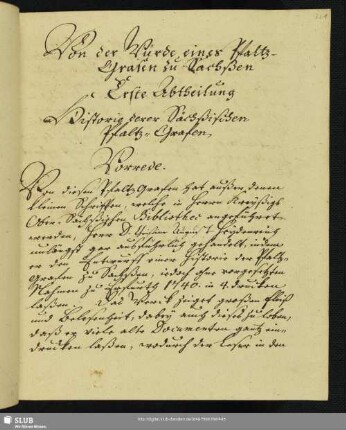 Von der Würde eines Pfaltz-
Grafen zu Sachßen
Erste Abtheilung
Historia derer Sächßischen
Pfaltz-Grafen.
Vorrede.
Von diesen Pfaltz Grafen hat außer denen
kleinen Schrifften, welche in Herrn Kreyßigs
Ober-Sächßischen Bibliothec angeführet
werden, Herr D. August Heydenreich
unlängst gar ausführlich gehandelt, indem
er den Entwurff einer Historie der Pfaltz-
Grafen zu Sachßen, iedoch ohne vorgesetzten
Nahmen zu 1740. in 4. drucken
laßen. Das Werck zeiget großen Fleiß
und Belesenheit, dabey auch dieses zu loben,
daß er viele alte Documenten gantz ein-
drucken laßen, wodurch der Leser in den
SLUB
Wir führen Wissen.